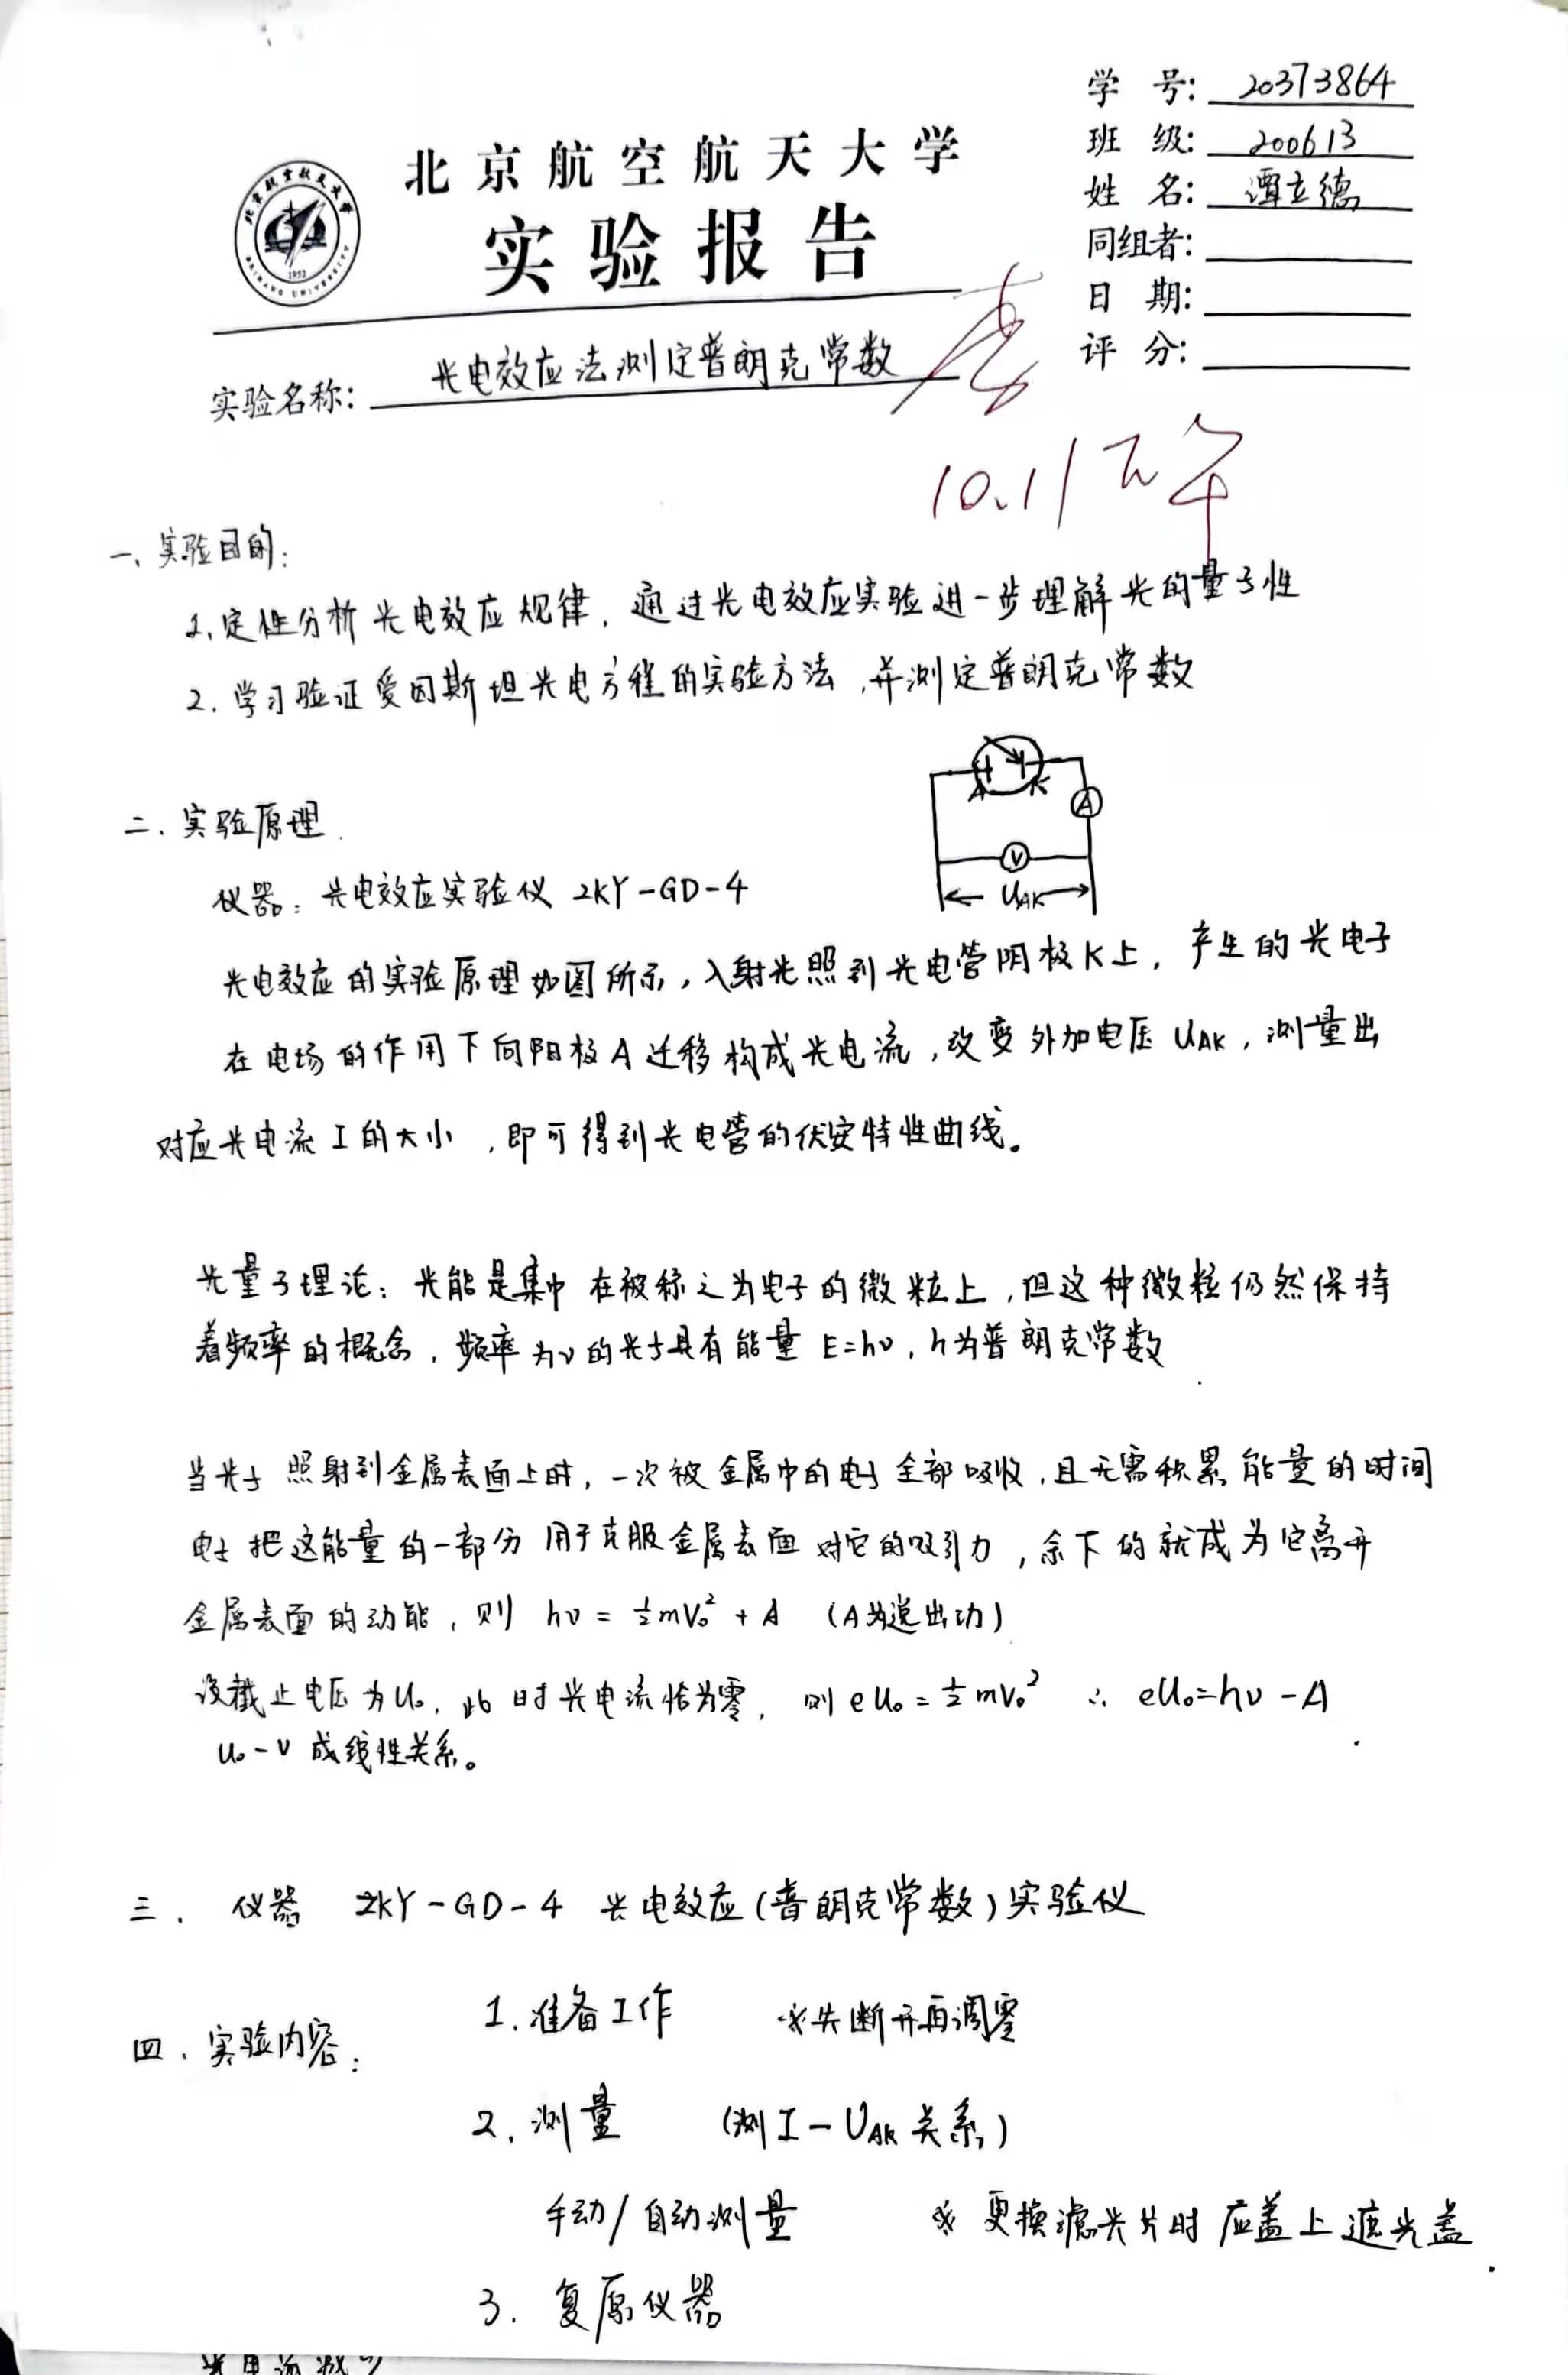 学 号: 20373864
班 级: 200613
姓 名: 谭立德
同组者:
日 期:
评 分:
北京航空航天大学
实验报告
1952
实验名称: 光电效应法测定普朗克常数
10.11 下午
一、实验目的:
1、定性分析光电效应规律,通过光电效应实验进一步理解光的量子性
2. 学习验证爱因斯坦光电方程的实验方法,并测定普朗克常数
A K
A
V
UAK
二、实验原理.
仪器:光电效应实验仪 ZKY-GD-4
光电效应的实验原理如图所示,入射光照到光电管阴极K上,产生的光电子
在电场的作用下向阳极A迁移构成光电流,改变外加电压 UAK,测量出
对应光电流 I 的大小,即可得到光电管的伏安特性曲线。
光量子理论:光能是集中在被称之为电子的微粒上,但这种微粒仍然保持
着频率的概念,频率为ν的光子具有能量 E=hν,h为普朗克常数
当光子照射到金属表面上时,一次被金属中的电子全部吸收,且无需积累能量的时间
电子把这能量的一部分用于克服金属表面对它的吸引力,余下的就成为它离开
金属表面的动能,则 hν = ½mV₀² + A (A为逸出功)
设截止电压为U₀,此时光电流恰为零,则 eU₀ = ½mV₀² ∴ eU₀=hν-A
U₀-ν 成线性关系。
三. 仪器 ZKY-GD-4 光电效应(普朗克常数)实验仪
四、实验内容:
1. 准备工作 ※先断开再调零
2. 测量 (测 I-UAK 关系)
手动/自动测量 ※ 更换滤光片时应盖上遮光盖.
3. 复原仪器